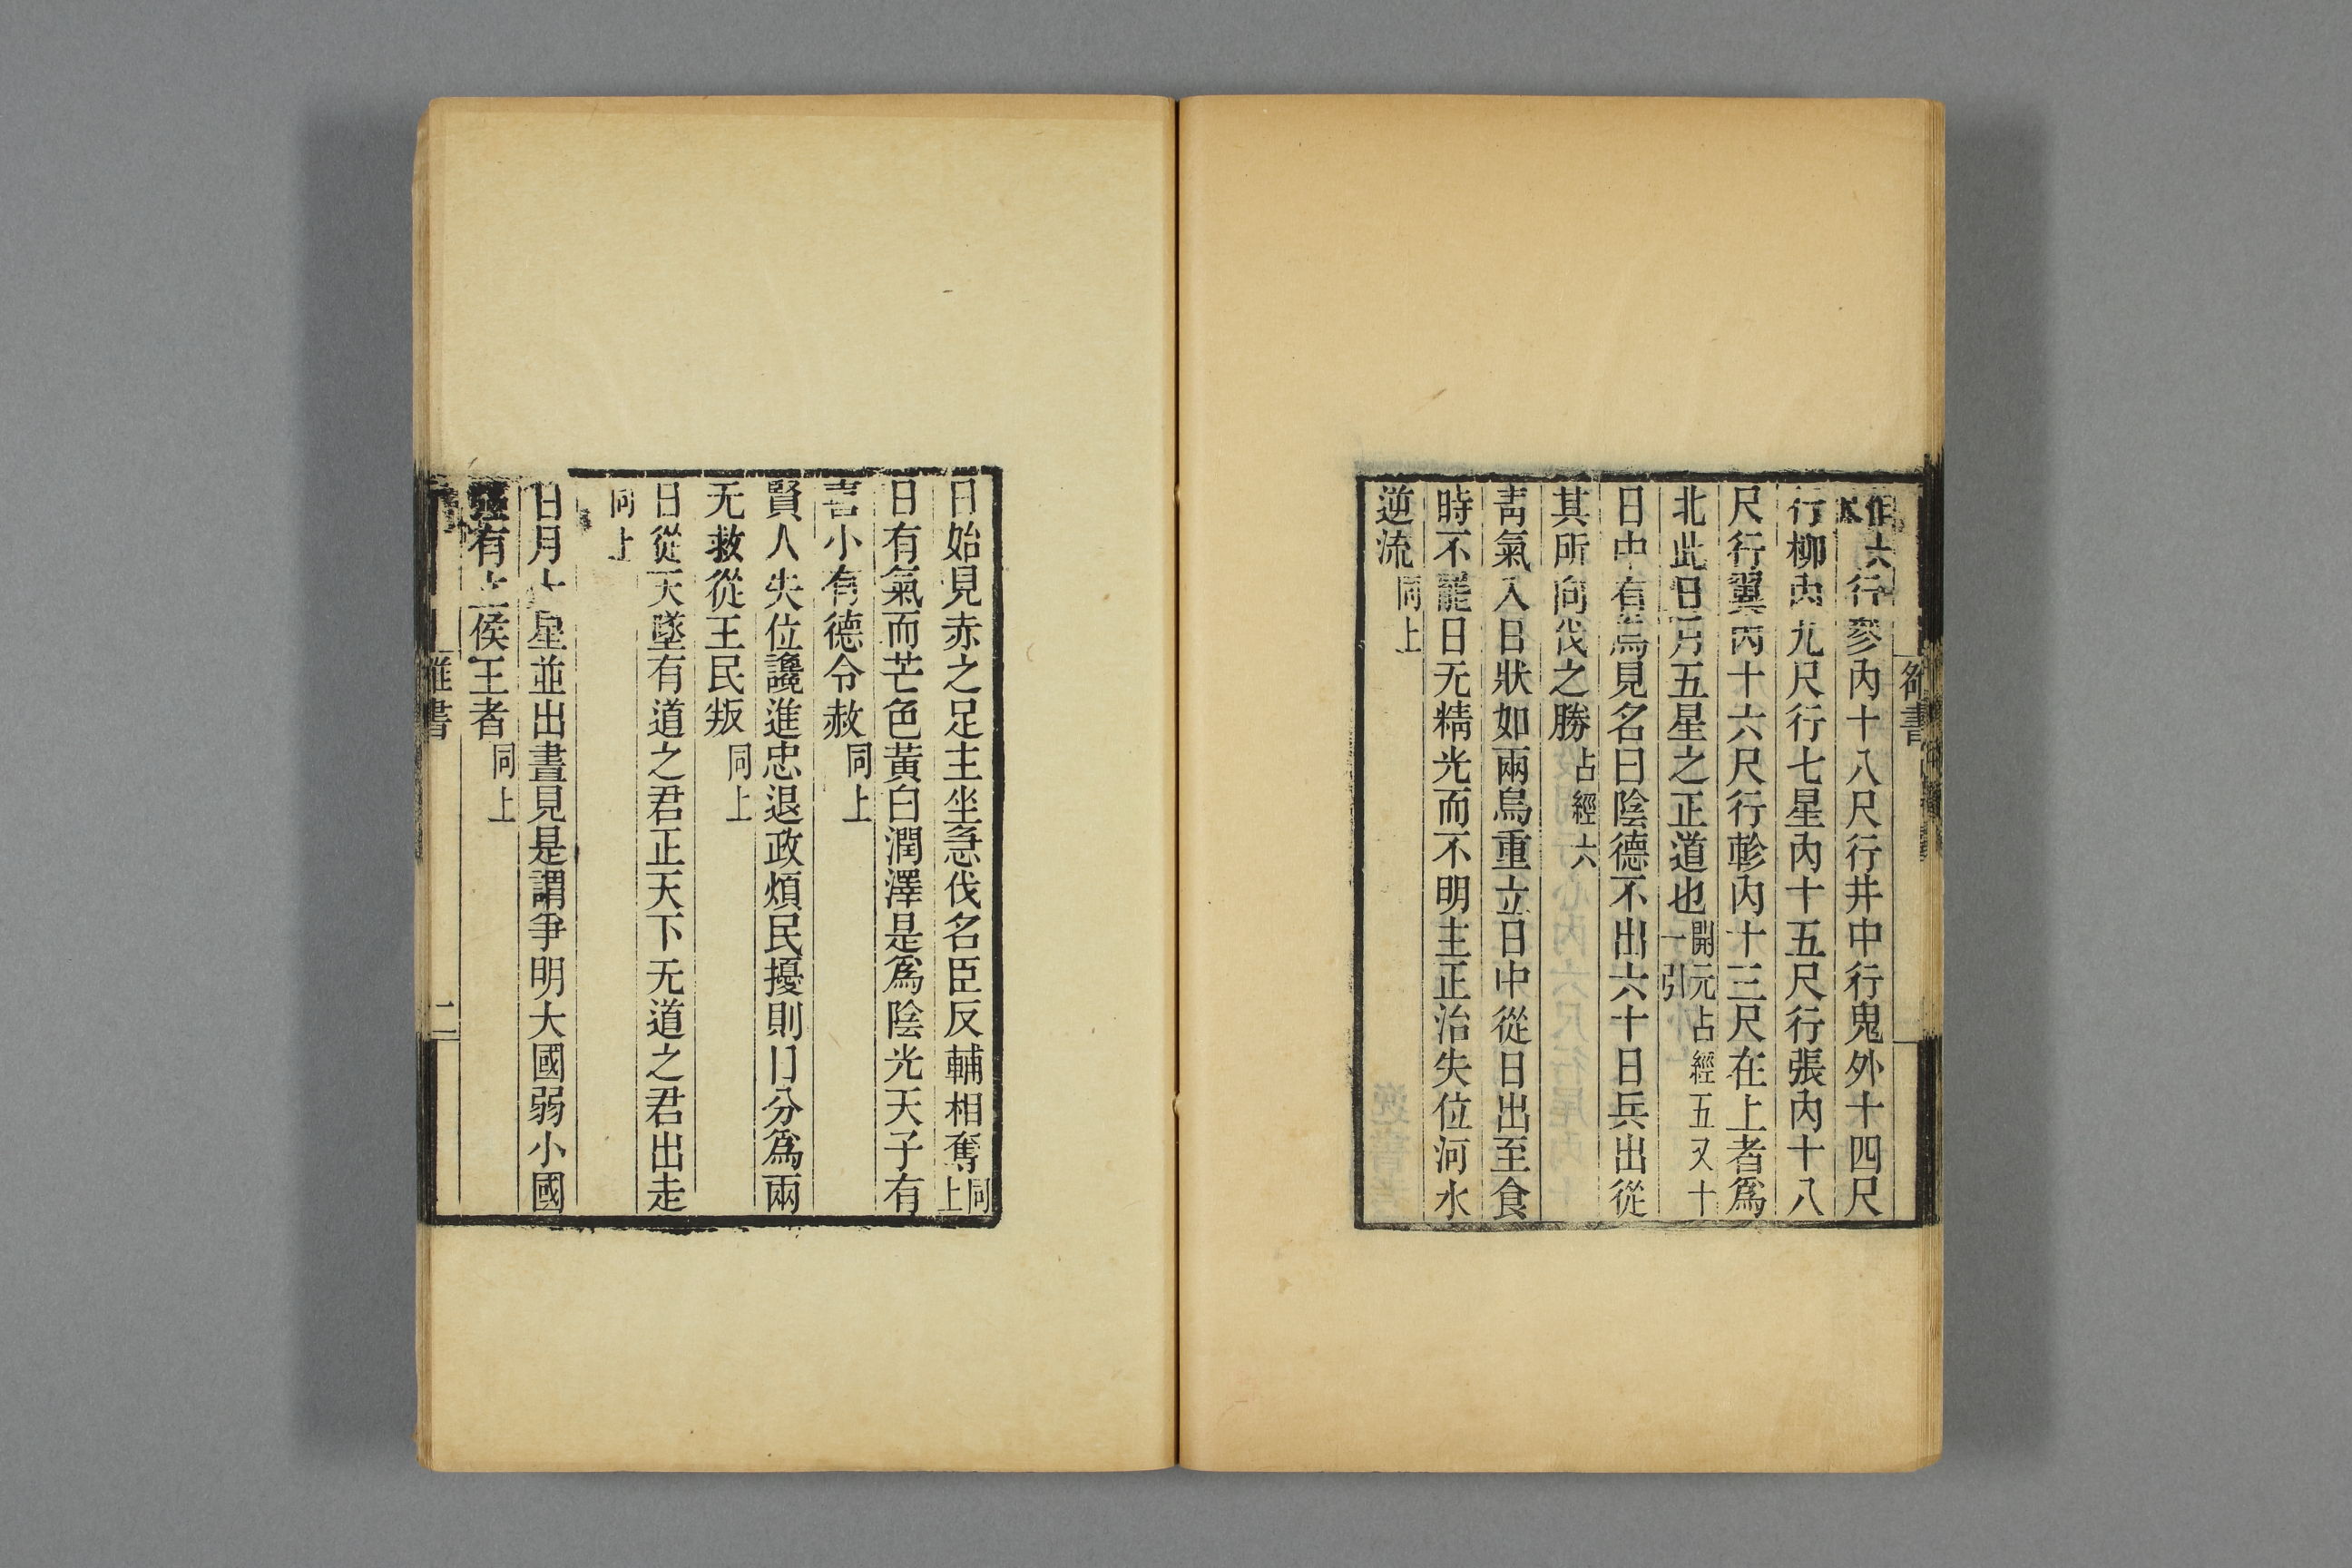 作六行參內十八尺行井中行鬼外十四尺
行柳內九尺行七星內十五尺行張內十八
尺行翼內十六尺行軫內十三尺在上者爲
北此日月五星之正道也開元占經五又十一引
日中有烏見名曰陰德不出六十日兵出從
其所向伐之勝占經六
靑氣入日狀如兩烏重立日中從日出至食
時不罷日无精光而不明主正治失位河水
逆流同上
日始見赤之足主坐急伐名臣反輔相奪同上
日有氣而芒色黃白潤澤是爲陰光天子有
喜小有德令赦同上
賢人失位讒進忠退政煩民擾則日分爲兩
无救從王民叛同上
日從天墜有道之君正天下无道之君出走
同上
日月大星並出晝見是謂爭明大國弱小國
强有立侯王者同上
書
二